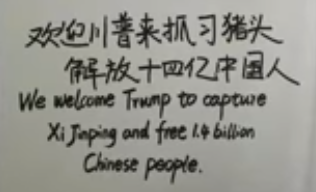 欢迎川普来抓习猪头
解放十四亿中国人
We welcome Trump to capture
Xi Jinping and free 1.4 billion
Chinese people.